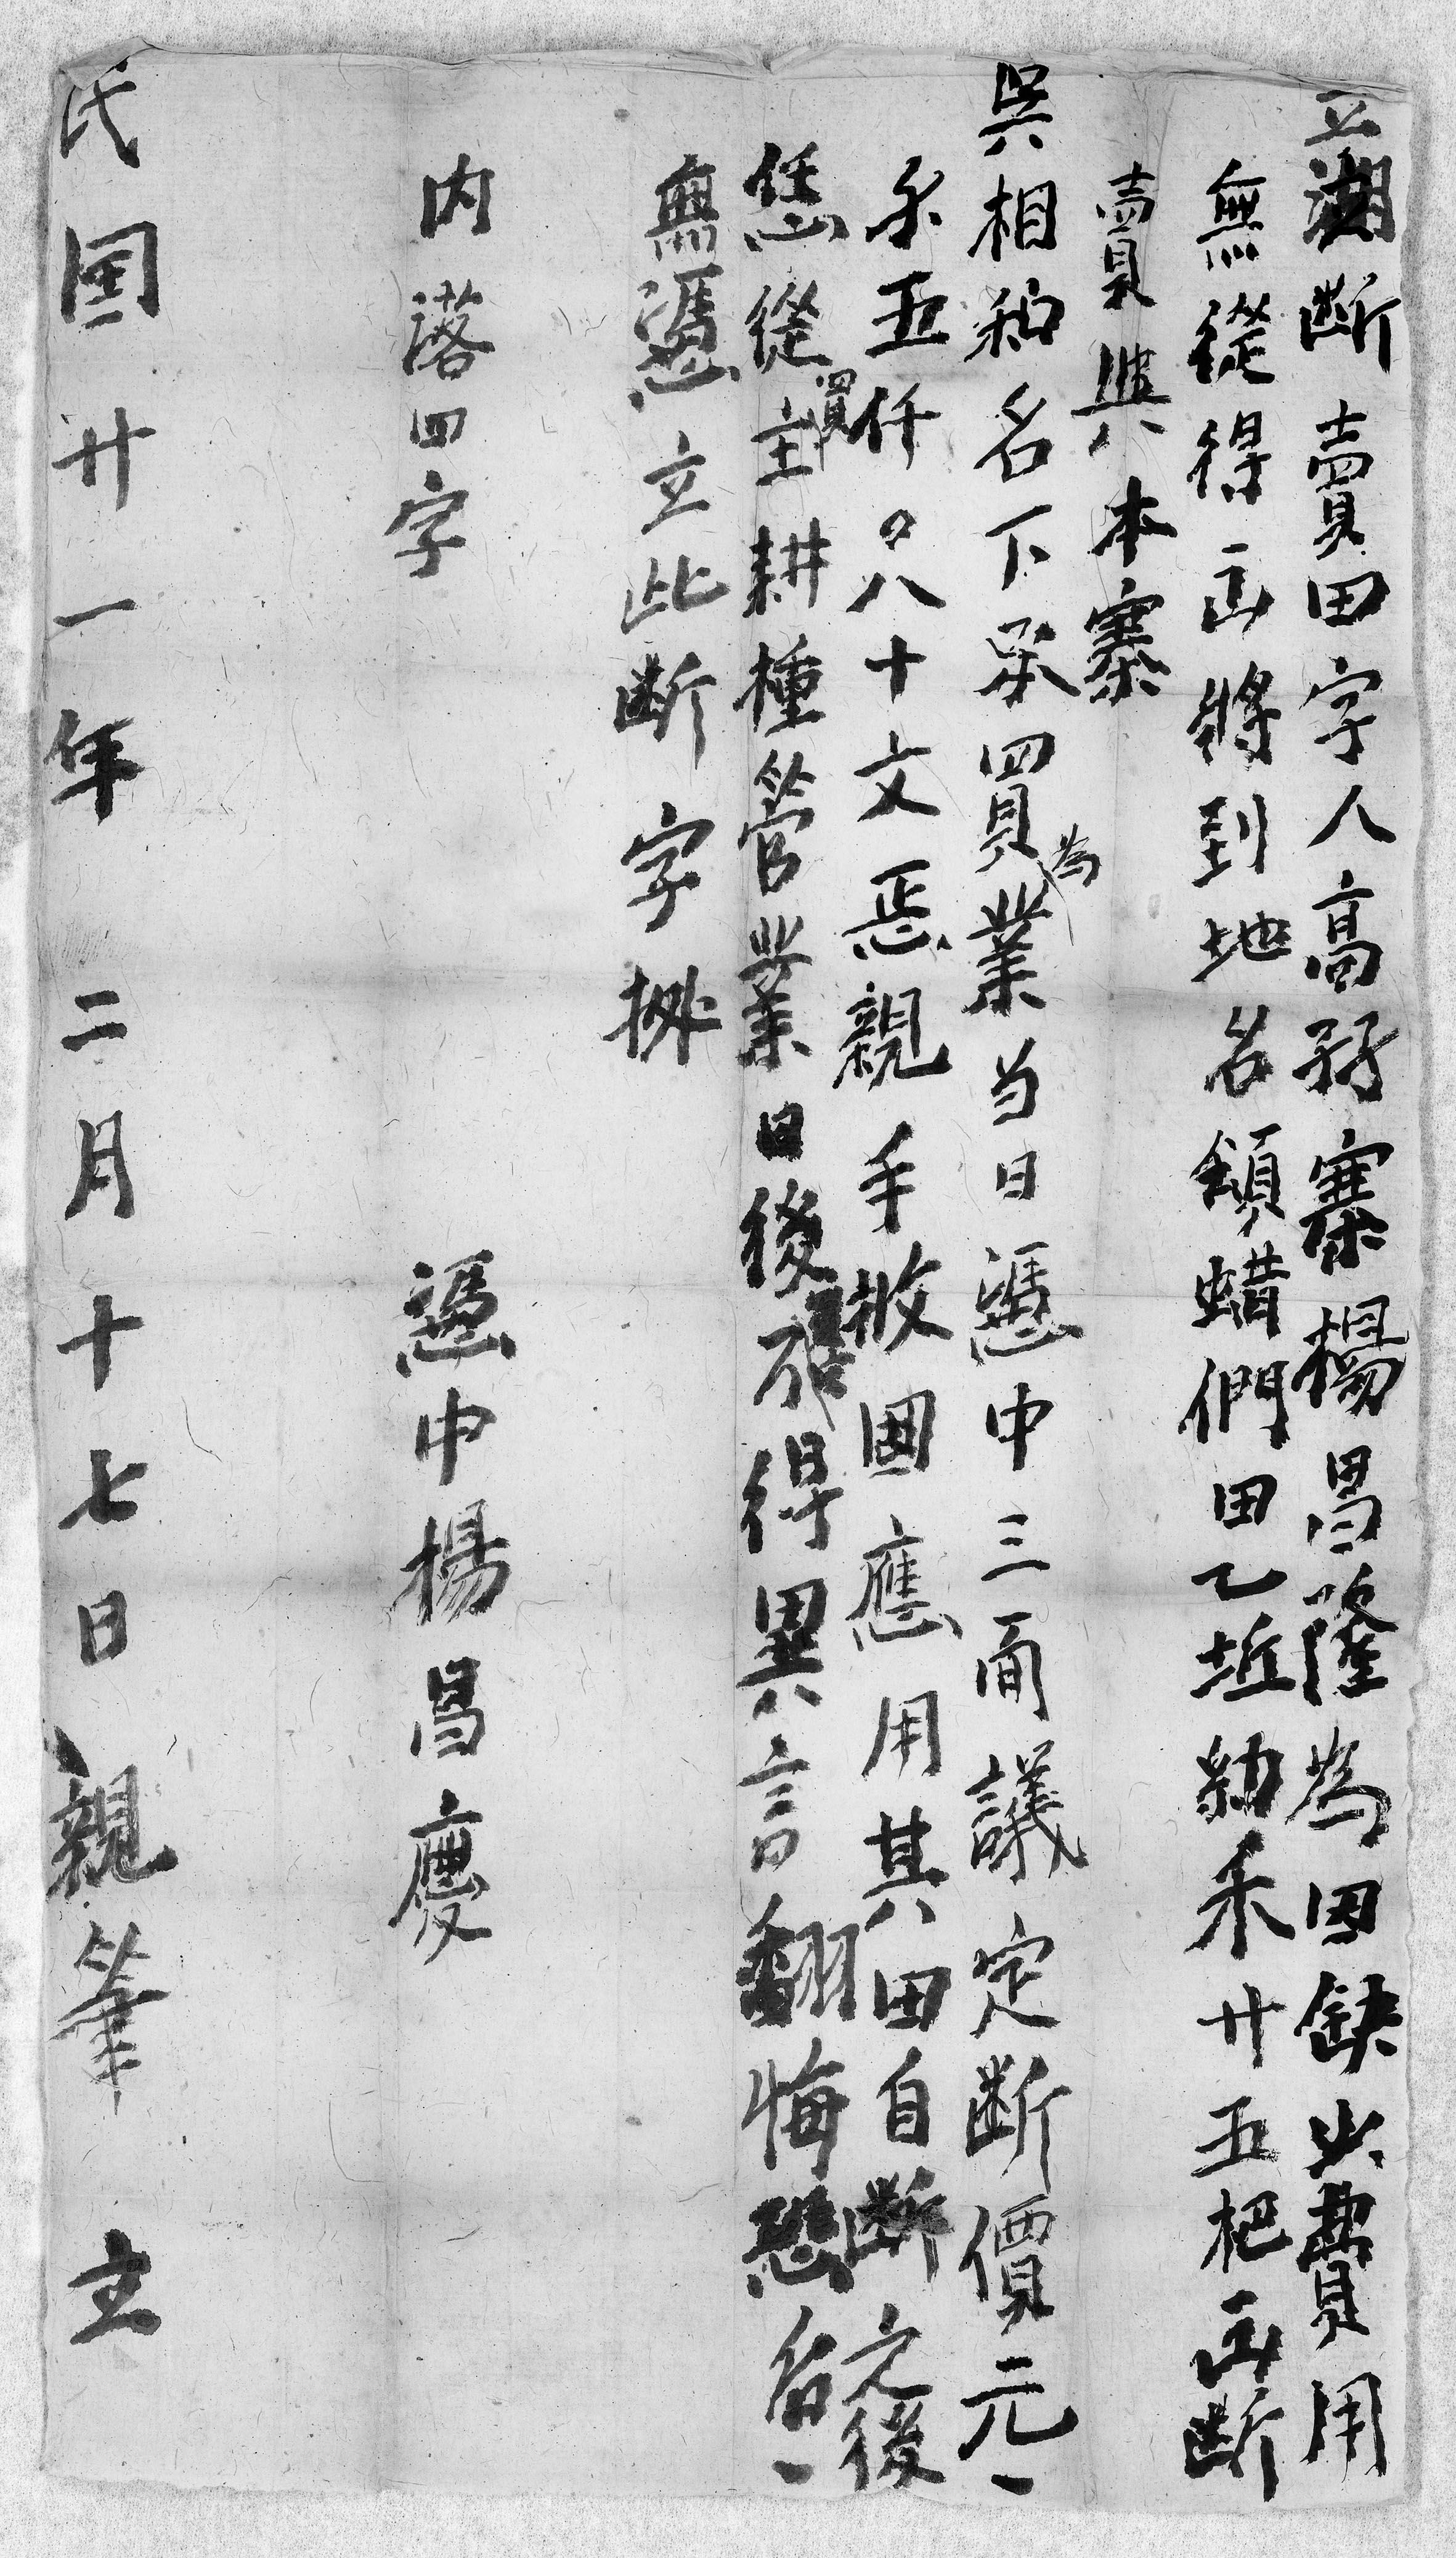 立斷賣田字人高孖寨楊昌隆為因缺出費用
無從得岀將到地名領蜡們田乙坵約禾廿五把岀斷
賣與本寨
吳相和名下承買為業当日憑中三面議定斷價元
錢五仟〇八十文悉親手收國應用其田自斷之後
恁從買主耕種管業日後不得異言翻悔恐后
無憑立此斷字掀
內落四字
憑中楊昌慶
民国廿一年二月十七日親筆立